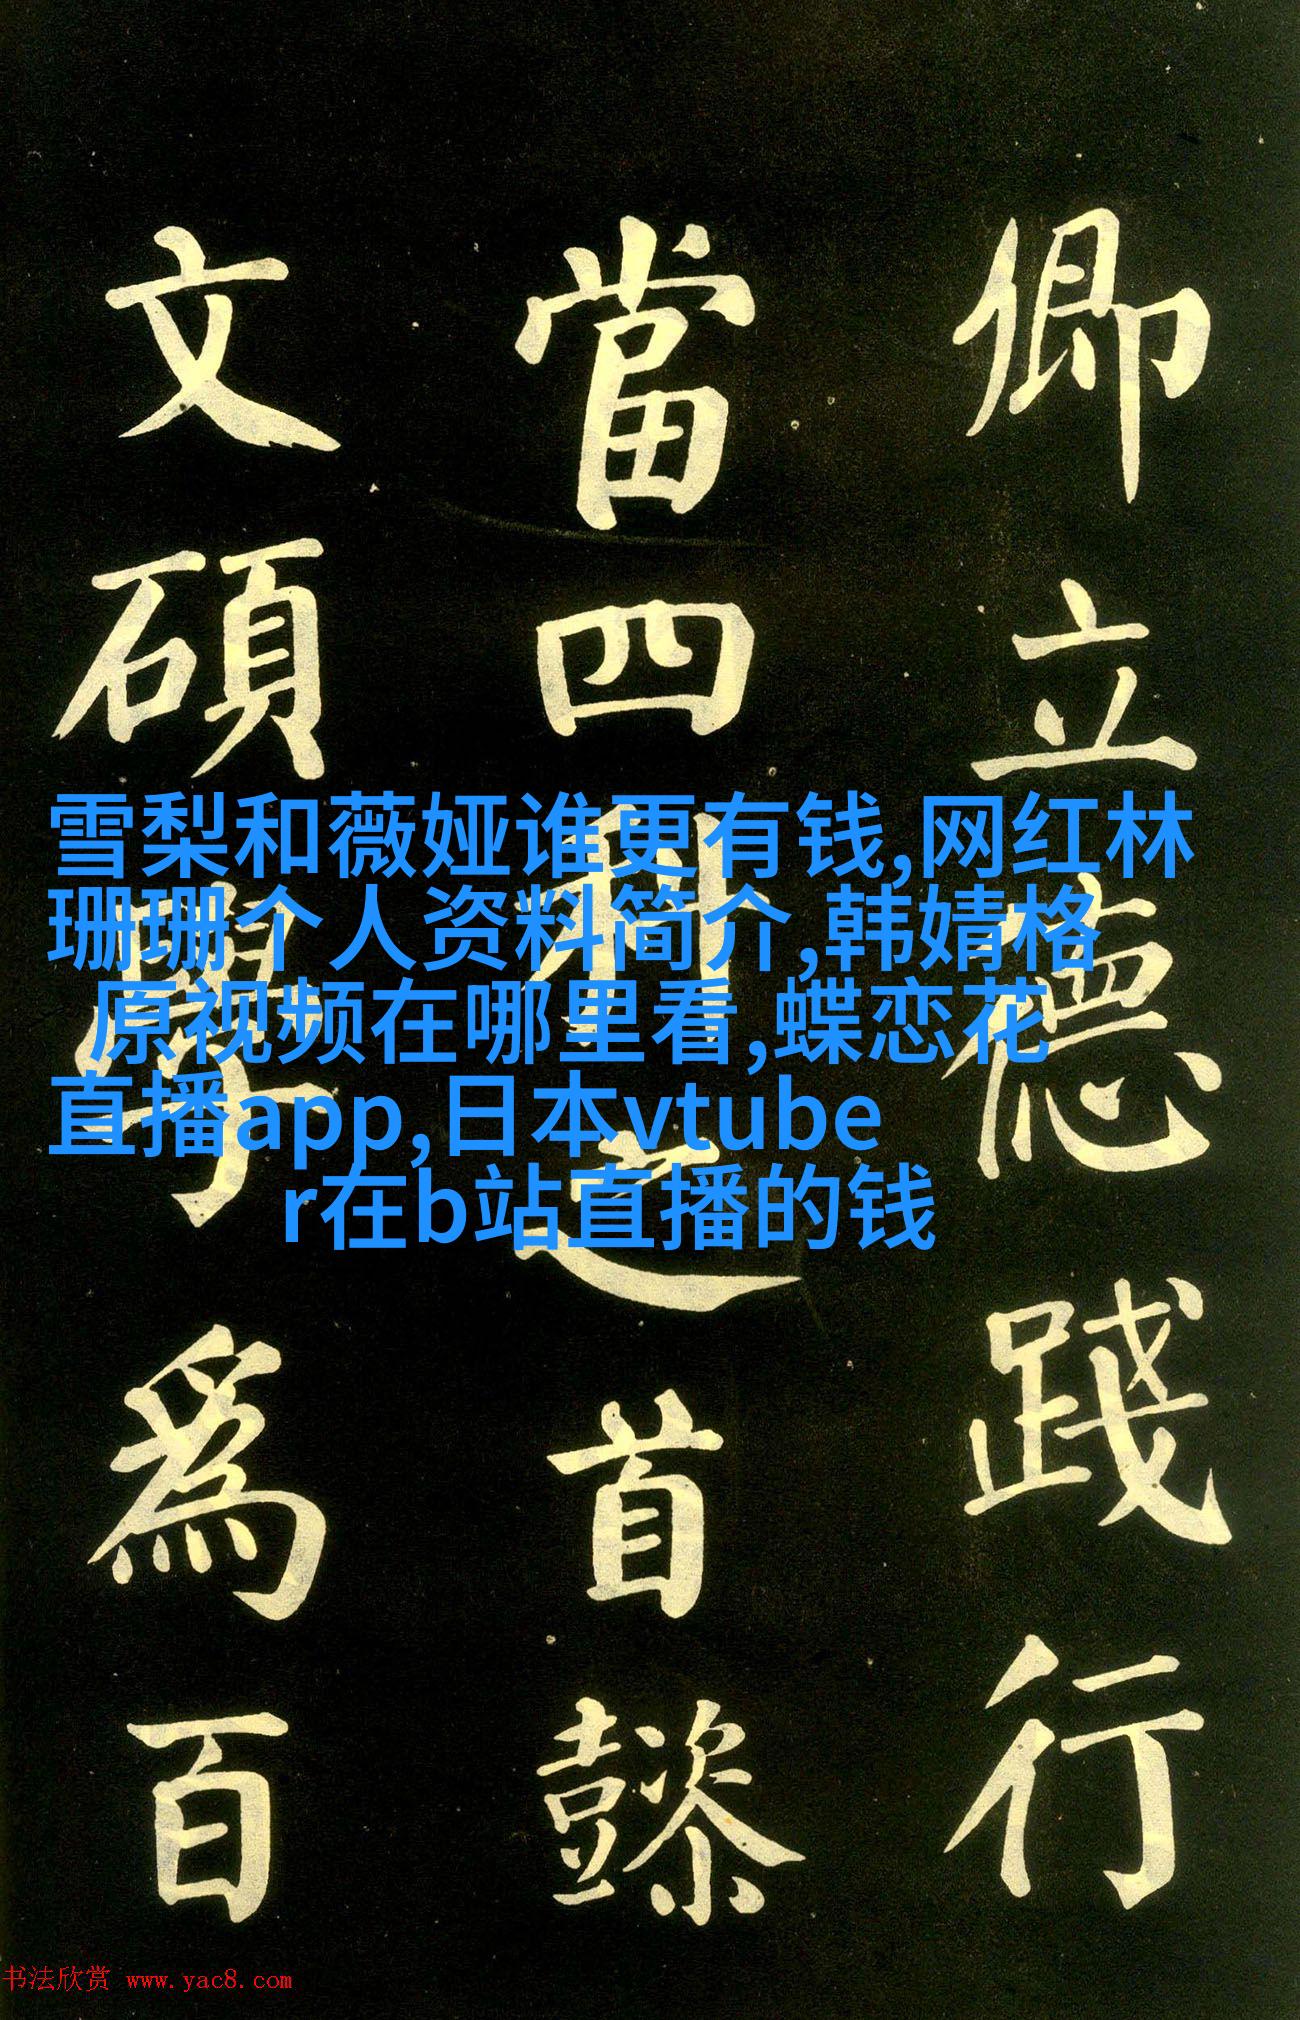 卿立德踐行
當四科之首懿
文碩學爲百
雪梨和薇娅谁更有钱,网红林
珊珊个人资料简介,韩婧格
原视频在哪里看,蝶恋花
直播app,日本vtube
r在b站直播的钱
书法欣赏 www.yac8.com